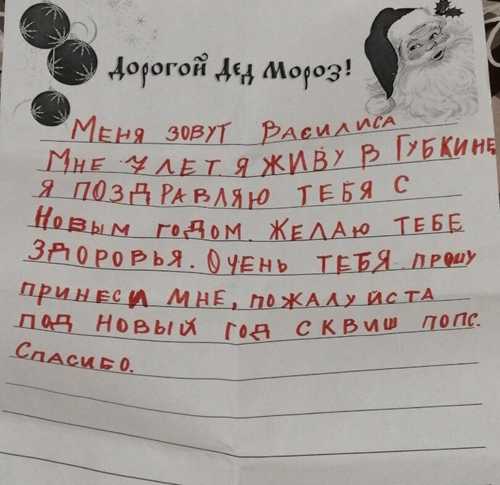 Дорогой Дед Мороз!
Меня зовут Василиса
Мне 7 лет. Я живу в Губкине
Я поздравляю тебя с
Новым годом. Желаю тебе
здоровья. Очень тебя прошу
принеси мне, пожалуйста
под новый год сквиш попс.
Спасибо.